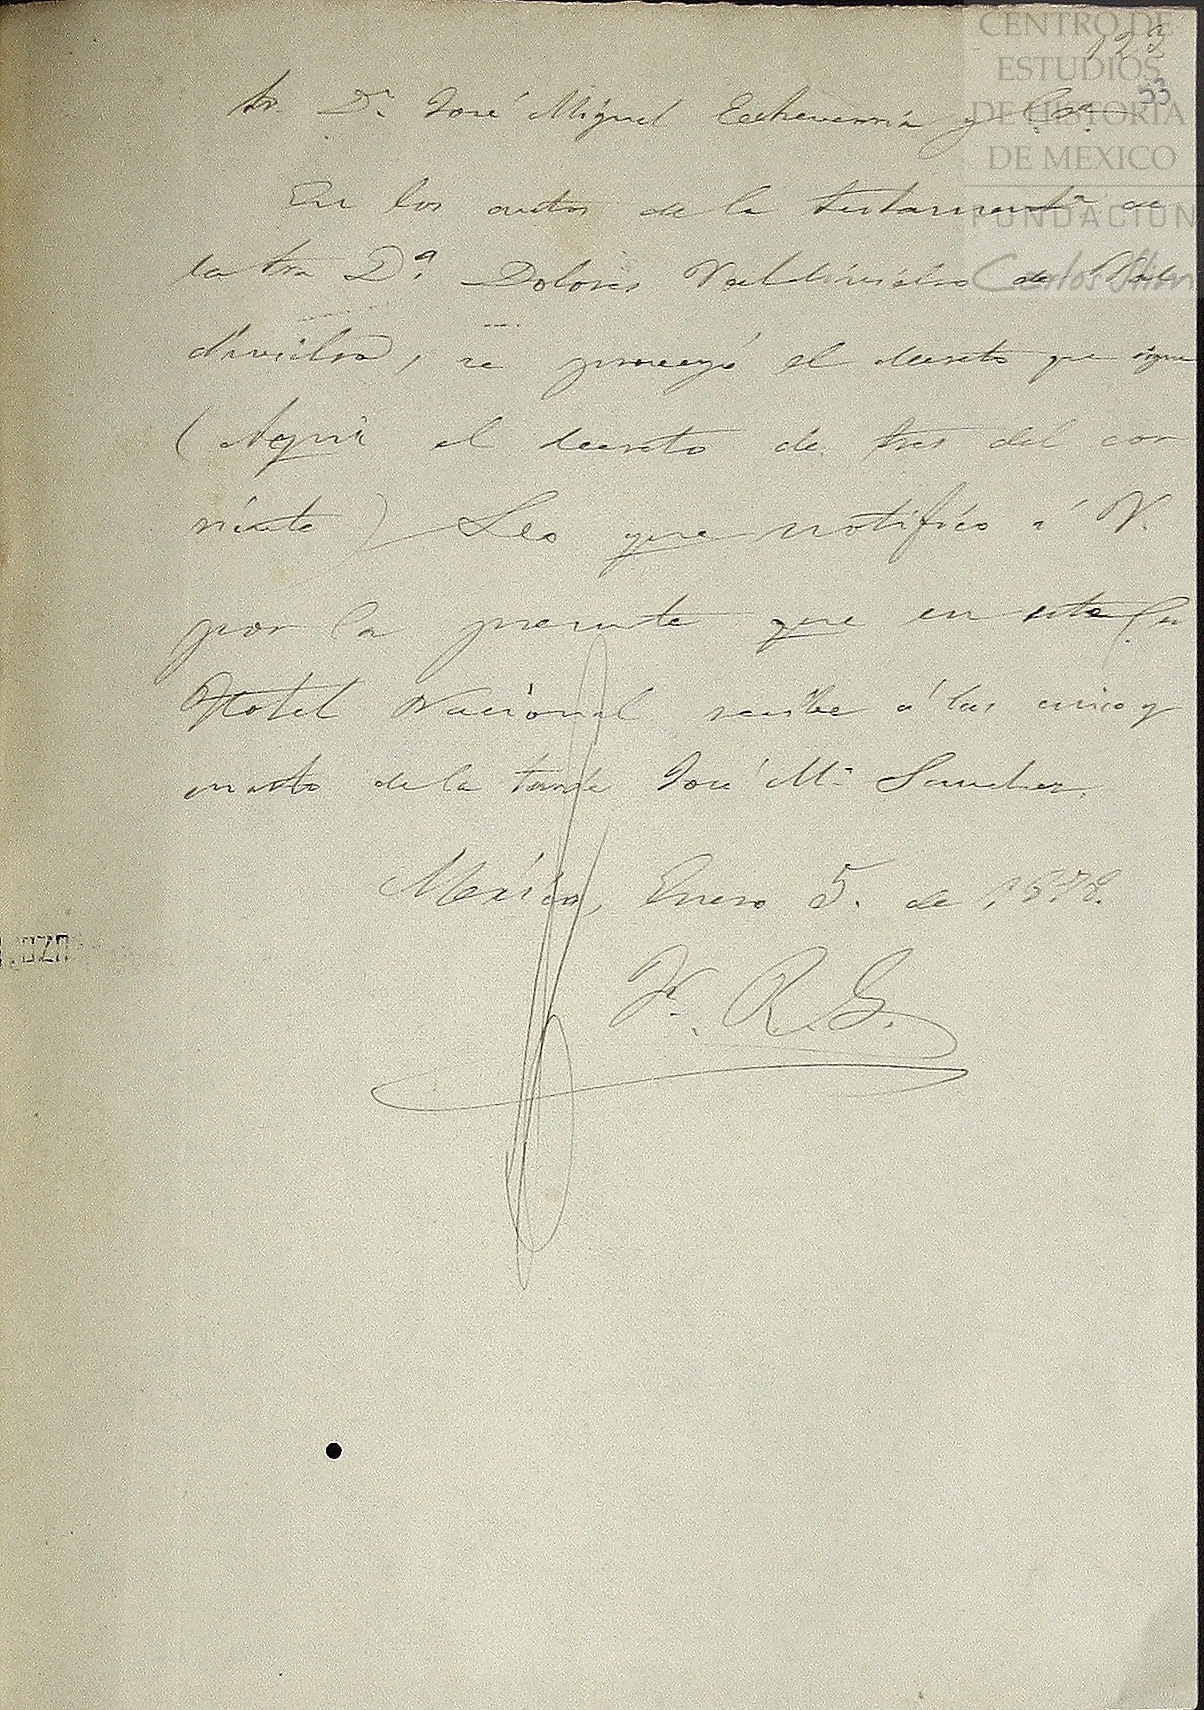 122
53
Sr. Dn. José Miguel Echeverria y Ca.
En los autos de la testamenta. de
la Sra Da. Dolores Valdivielso de Val
divielso, se proveyó el decreto que sigue
(Aquí el decreto de tres del cor
riente) Lo que notifico á V.
por la presente que en este
Hotel Nacional recibe á las cinco y
cuarto de la tarde José Ma. Sanchez.
México, Enero 5. de 1878.
R. G.
CENTRO DE
ESTUDIOS
DE HISTORIA
DE MEXICO
FUNDACION
Carlos Slim